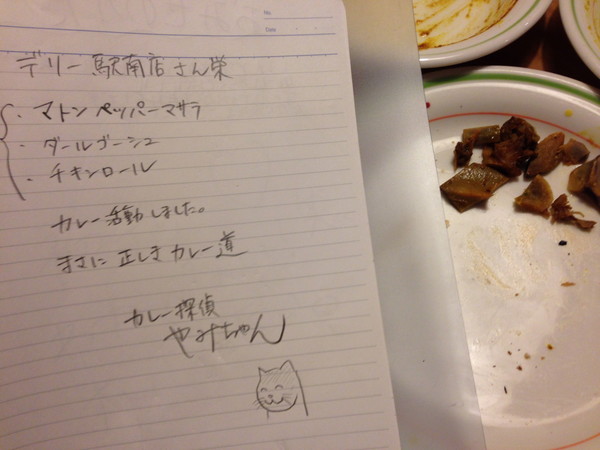 No.
Date
デリー 駅南店さん栄
・マトンペッパーマサラ
・ダールゴーシュ
・チキンロール
カレー活動しました。
まさに 正しき カレー道
カレー探偵
やみちゃん